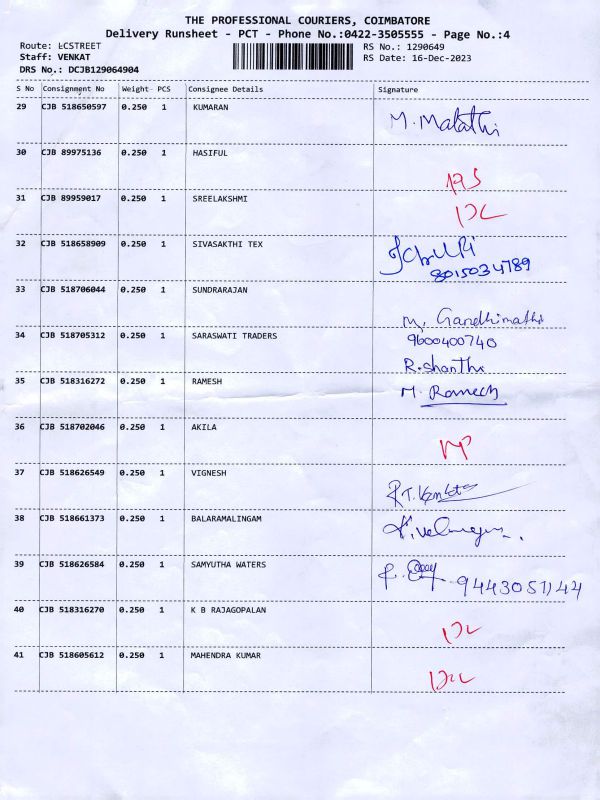 THE PROFESSIONAL COURIERS, COIMBATORE
Delivery Runsheet - PCT - Phone No.:0422-3505555 - Page No.:4
Route: LCSTREET RS No.: 1290649
Staff: VENKAT RS Date: 16-Dec-2023
DRS No.: DCJB129064904
S No Consignment No Weight PCS Consignee Details Signature
29 CJB 518650597 0.250 1 KUMARAN M. Malathi
30 CJB 89975136 0.250 1 HASIFUL
31 CJB 89959017 0.250 1 SREELAKSHMI DL
32 CJB 518658909 0.250 1 SIVASAKTHI TEX
8015034789
33 CJB 518706044 0.250 1 SUNDRARAJAN M. Gandhimathi
34 CJB 518705312 0.250 1 SARASWATI TRADERS 9600400740
R. shanthi
35 CJB 518316272 0.250 1 RAMESH M. Ramesh
36 CJB 518702046 0.250 1 AKILA
37 CJB 518626549 0.250 1 VIGNESH
38 CJB 518661373 0.250 1 BALARAMALINGAM
39 CJB 518626584 0.250 1 SAMYUTHA WATERS 9443051144
40 CJB 518316270 0.250 1 K B RAJAGOPALAN DL
41 CJB 518605612 0.250 1 MAHENDRA KUMAR